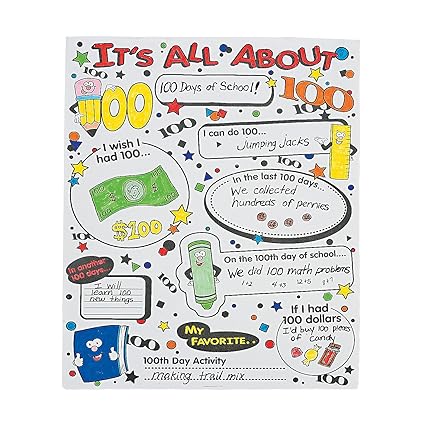 IT'S ALL ABOUT
100
100 Days of School!
100
100
I can do 100...
Jumping Jacks
100
I wish I
had 100...
$100
In the last 100 days...
We collected
hundreds of pennies
On the 100th day of school....
We did 100 math problems
In another
100 days...
I will
learn 100
new things
100
MY
FAVORITE..
100th Day Activity
making trail mix
If I had
100 dollars
I'd buy 100 pieces
of candy
100